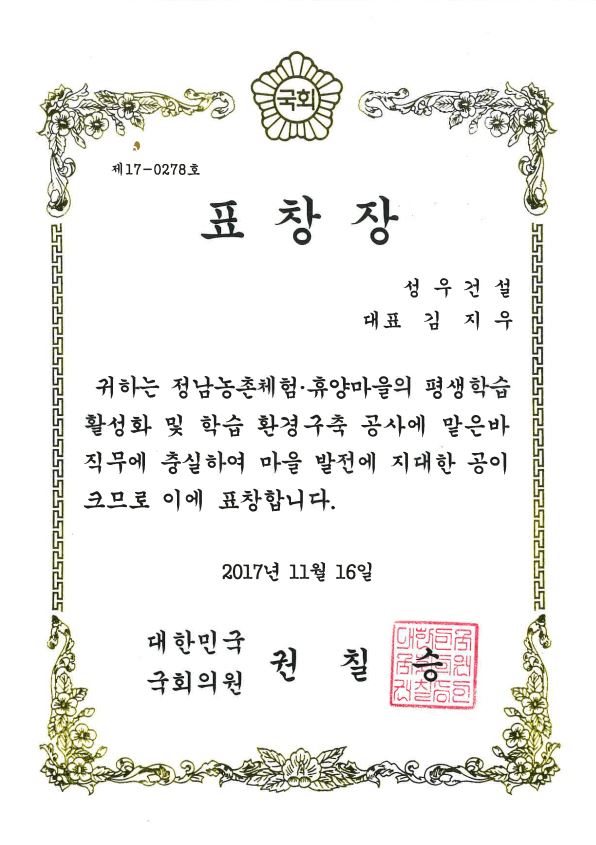 국회
제17-0278호
표창장
성우건설
대표 김지우
귀하는 정남농촌체험·휴양마을의 평생학습
활성화 및 학습 환경구축 공사에 맡은바
직무에 충실하여 마을 발전에 지대한 공이
크므로 이에 표창합니다.
2017년 11월 16일
대한민국
국회의원 권칠승